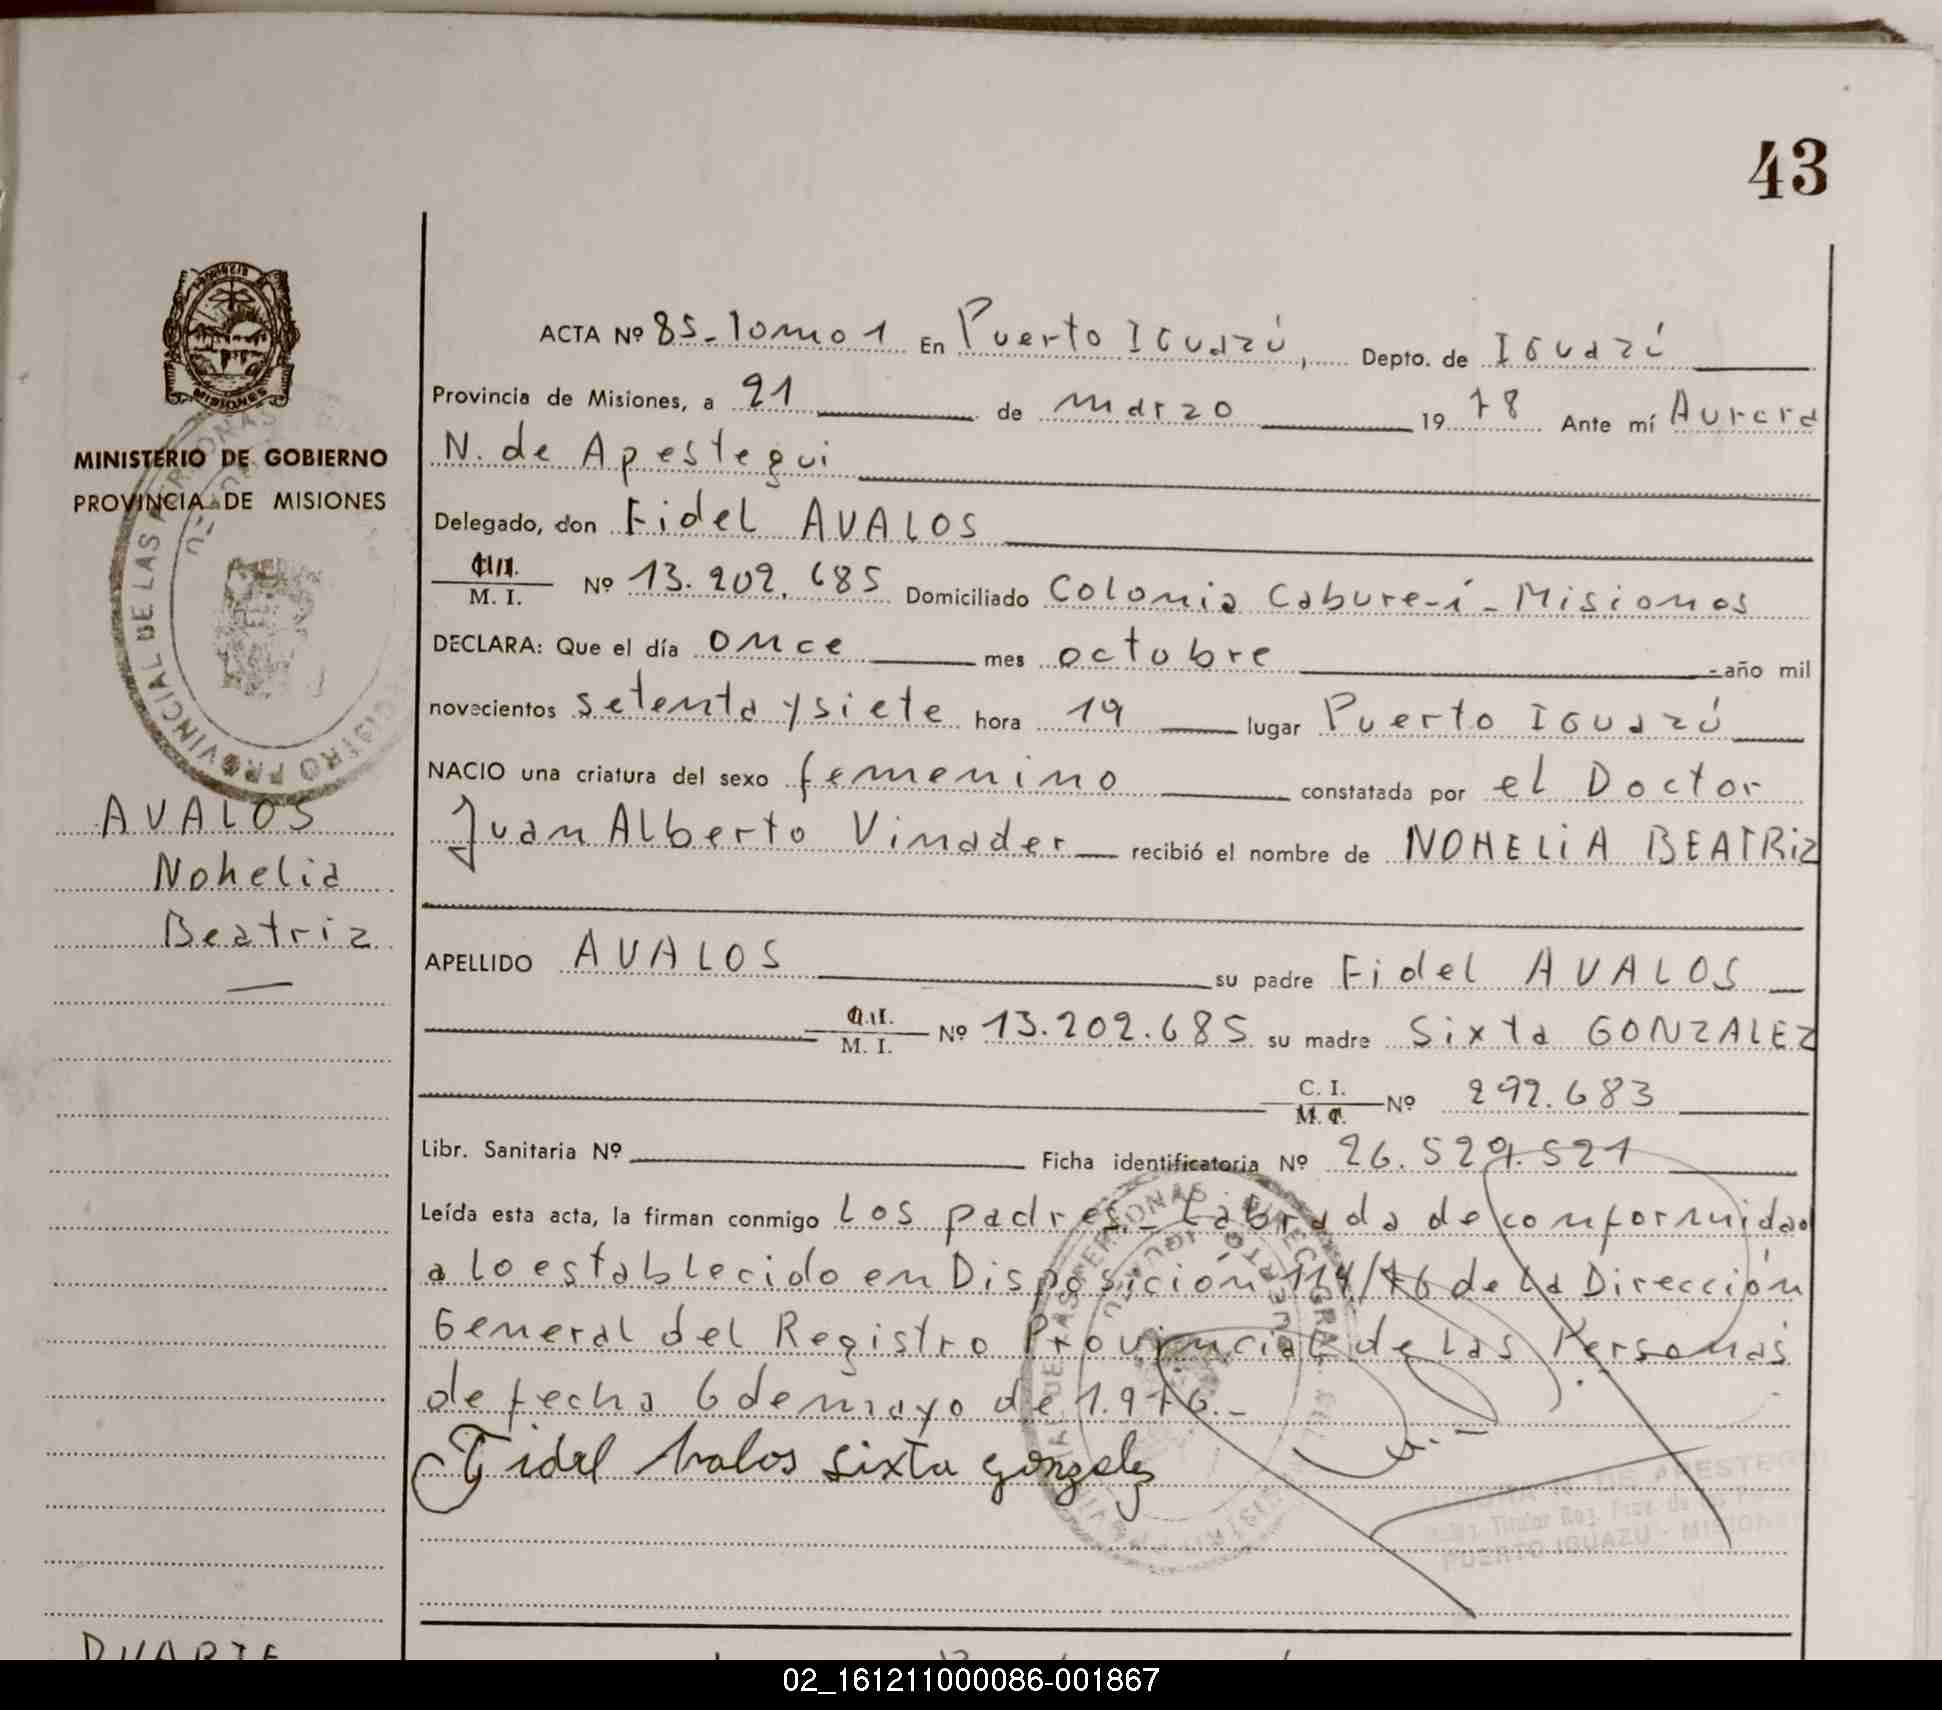 43
MISIONES
MINISTERIO DE GOBIERNO
PROVINCIA DE MISIONES
AVALOS
Nohelia
Beatriz
ACTA Nº 85-Tomo 1 En Puerto IGuazú, Depto. de IGuazú
Provincia de Misiones, a 21 de marzo 19 78 Ante mí Aurora
N. de Apestegui
Delegado, don Fidel AVALOS
M. I. Nº 13.202.685 Domiciliado Colonia Cabure-í - Misiones
DECLARA: Que el día once mes octubre - año mil
novecientos setenta y siete hora 19 lugar Puerto IGuazú
NACIO una criatura del sexo femenino constatada por el Doctor
Juan Alberto Vinader recibió el nombre de NOHELiA BEATRiZ
APELLIDO AVALOS su padre Fidel AVALOS
M. I. Nº 13.202.685 su madre Sixta GONZALEZ
C. I. Nº 292.683
Libr. Sanitaria Nº Ficha identificatoria Nº 26.529.521
Leída esta acta, la firman conmigo los padres - Labrada de conformidad
a lo establecido en Disposición 114/76 de la Dirección
General del Registro Provincial de las Personas
de fecha 6 de mayo de 1.976.-
Fidel Avalos Sixta gonzalez
PUERTO IGUAZU - MISIONES
DUARTE
02_161211000086-001867